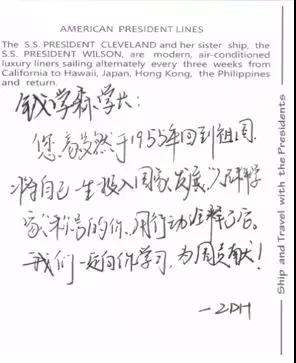 AMERICAN PRESIDENT LINES
The S.S. PRESIDENT CLEVELAND and her sister ship, the
S.S. PRESIDENT WILSON, are modern, air-conditioned
luxury liners sailing alternately every three weeks from
California to Hawaii, Japan, Hong Kong, the Philippines
and return.
钱学森学长:
您毅然于1955年回到祖国.
将自己一生投入国家发展.
家称号的你.用行动诠释了
我们一定向你学习,为国贡献!
—ZDH
Ship and Travel with the Presidents